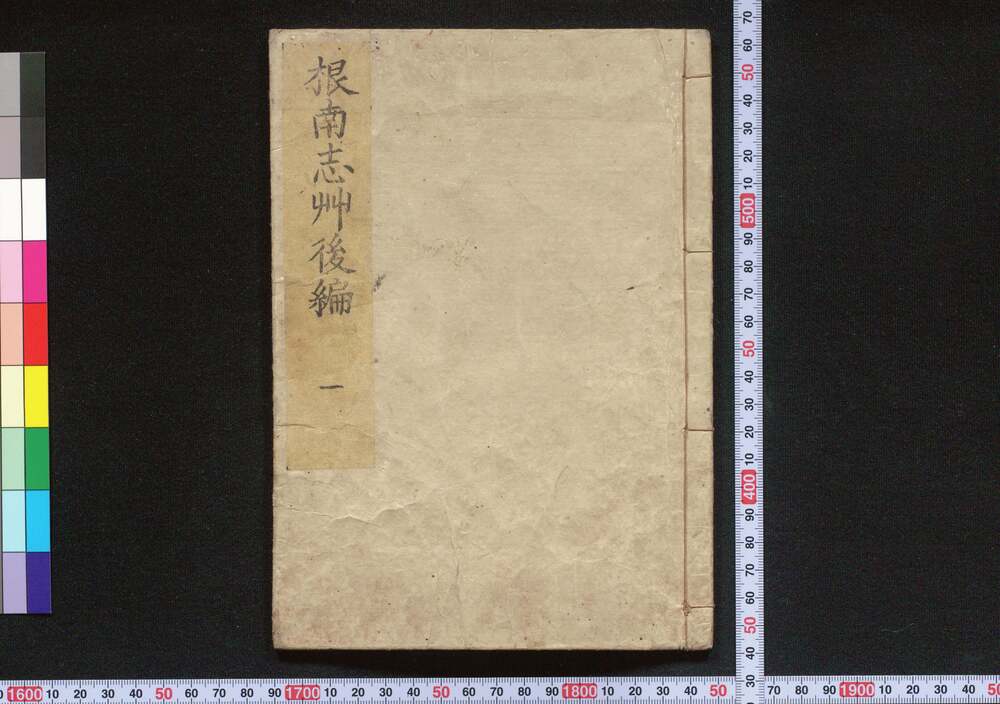 根南志艸後編
一
70
60
50
40
30
20
10
500
90
80
70
60
50
40
30
20
10
400
90
80
70
60
50
40
30
0 1600 10 20 30 40 50 60 70 80 90 1700 10 20 30 40 50 60 70 80 90 1800 10 20 30 40 50 60 70 80 90 1900 10 20 30 40 50